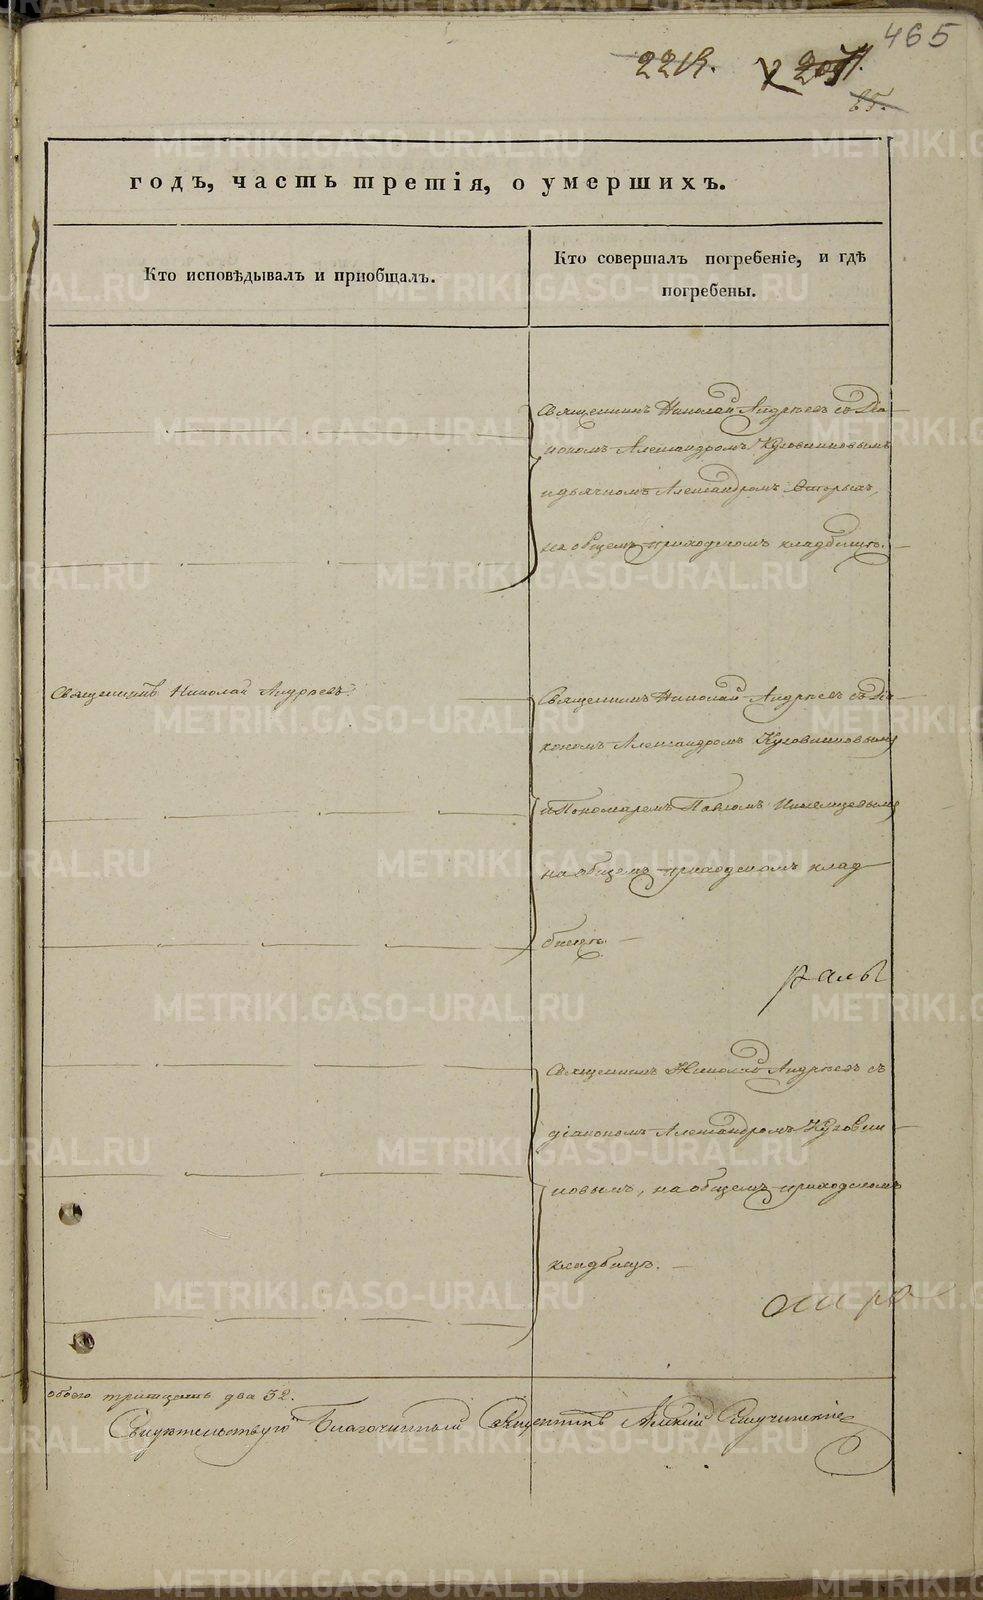 465
2219. 2071.
85.
годъ, часть третія, о умершихъ.
Кто исповѣдывалъ и пріобщалъ.
Кто совершалъ погребеніе, и гдѣ
погребены.
Священникъ Николай Андрѣевъ съ Діа-
кономъ Александромъ Куковинновымъ
и дьячкомъ Александромъ
на общемъ приходскомъ кладбищѣ.
Священникъ Николай Андрѣевъ
Священникъ Николай Андрѣевъ съ Діа-
кономъ Александромъ Куковинновымъ
и Пономаремъ Павломъ
на общемъ приходскомъ клад-
бищѣ.
Священникъ Николай Андрѣевъ съ
діакономъ Александромъ Куковин-
новымъ, на общемъ приходскомъ
кладбищѣ.
обоего тритцать два 32.
Свидѣтельствую Благочинный Священникъ
METRIKI.GASO-URAL.RU